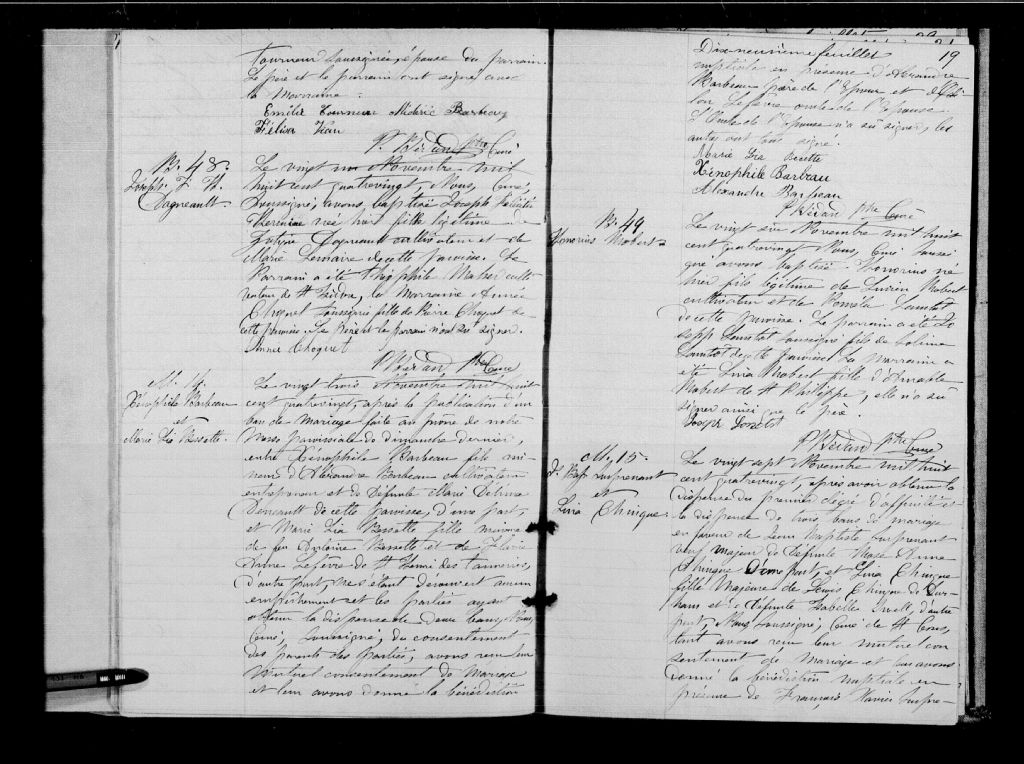 Tourneur soussignée, épouse du parrain.
Le père et le parrain ont signé avec
la Marraine.
Emélie Tourneur Médéric Barbeau
P. Bédard Ptre Curé
B. 48.
Joseph F. H.
Dagneault.
Le vingt un Novembre mil
huit cent quatrevingt, Nous, Curé,
Soussigné, avons baptisé Joseph
née hier fille légitime de
Dagneault cultivateur et de
Marie Lemaire de cette paroisse. Le
Parrain a été Théophile Massé culti-
vateur de St Isidore, la Marraine Année
Choquet soussignée fille de Pierre Choquet de
cette paroisse. Le père et le parrain n'ont su signer.
Année Choquet
P. Bédard Ptre Curé
M. 14.
Xénophile Barbeau
et
Marie Lia Bessette.
Le vingt trois Novembre mil huit
cent quatrevingt, après la publication d'un
ban de Mariage faite au prône de notre
Messe paroissiale de dimanche dernier,
entre Xénophile Barbeau fils mi-
neur d'Alexandre Barbeau cultivateur
entrepreneur et de Défunte Marie Délina
de cette paroisse, d'une part,
et Marie Lia Bessette fille mineure
de feu Antoine Bessette et de
Lefevre de St Henri des Tanneries,
d'autre part, ne s'étant découvert aucun
empêchement et les parties ayant
obtenu la dispense de deux bans, Nous,
Curé, Soussigné, du consentement
des parents des Parties, avons reçu leur
Mutuel consentement de Mariage
et leur avons donné la bénédiction
Dix-neuvième feuillet 19
nuptiale en présence d'Alexandre
Barbeau père de l'Epoux et
Lefevre oncle de l'Epouse.
L'Oncle de l'Epouse n'a su signer, les
autres ont signé.
Marie Lia Bessette
Xénophile Barbeau
Alexandre Barbeau
P. Bédard Ptre Curé
B. 49
Honorius Robert
Le vingt six Novembre mil huit
cent quatrevingt Nous, Curé soussi-
gné avons baptisé Honorius né
hier fils légitime de Lucien Robert
cultivateur et de
de cette paroisse. Le parrain a été Jo
seph soussigné fils de
de cette paroisse. La Marraine a
été Lina Robert fille d'Amable
Robert de St Philippe, elle n'a su
signer ainsi que le père.
P. Bédard Ptre Curé
M. 15.
J. Bap. Surprenant
et
Lina
Le vingt sept Novembre mil huit
cent quatrevingt, après avoir obtenu la
dispense du premier degré d'affinité et
la dispense de trois bans de mariage
en faveur de Jean Baptiste Surprenant
veuf majeur de défunte Rose Anne
d'une part, et Lina
fille Majeure de Louis de
et de Défunte Isabelle d'autre
part, Nous, Soussigné, Curé de St
avons reçu leur mutuel con
sentement de Mariage et leur avons
donné la bénédiction nuptiale en
présence de François Xavier Surpre-